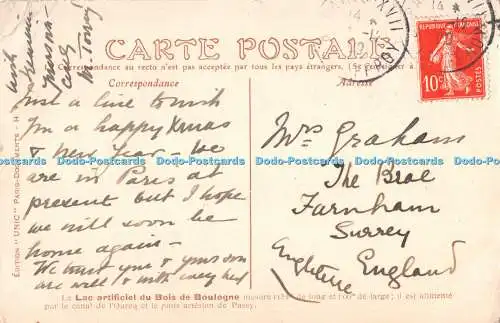 CARTE POSTALE
La Correspondance au recto n'est pas acceptée par tous les pays étrangers. (Se renseigner à
Correspondance
Adresse
RÉPUBLIQUE FRANÇAISE
10c
POSTES
with
Just a line to wish
I'm a happy Xmas
& New Year - We
are in Paris at
present but I hope
we will soon be
home again -
We trust you & yours
are well & with every
Mrs Graham
The Brae
Farnham
Surrey
Angleterre England
Dodo-Postcards Dodo-Postcards Dodo-Postcards Dodo-Postcards Dodo-Postcards Dodo-Postcards
ÉDITION "UNIC" PARIS-
Le Lac artificiel du Bois de Boulogne mesure de long et de large; il est alimenté
par le canal de l'Ourcq et le puits artésien de Passy.